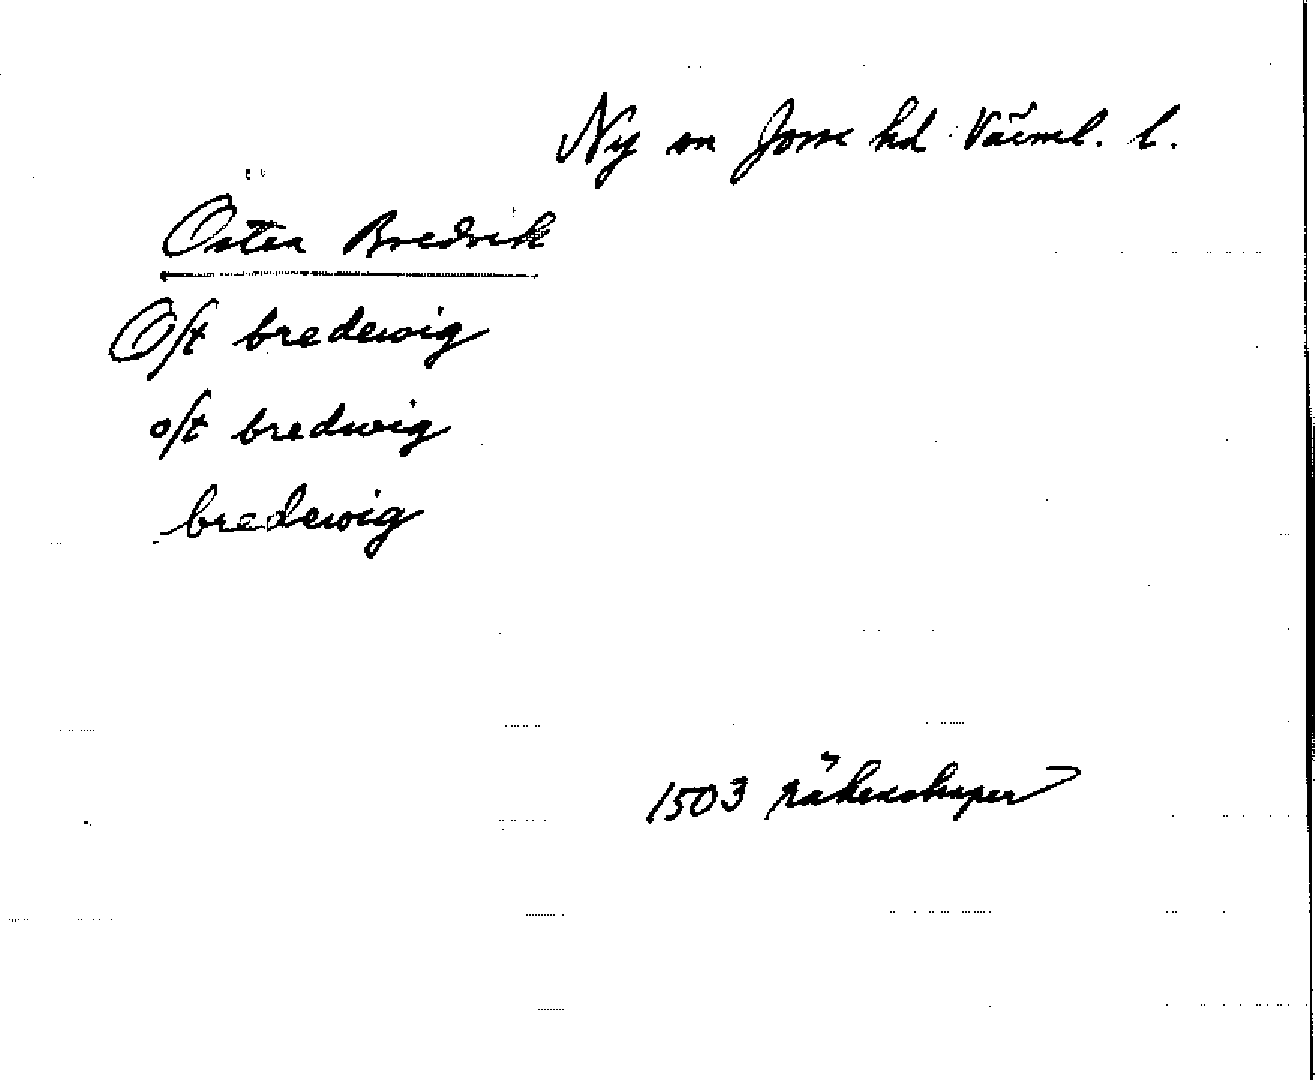 Ny sn Jösse hd Värml. l.
Östra Bredvik
O/st bredewig
o/st bredwig
bredewig
1503 räkenskaper